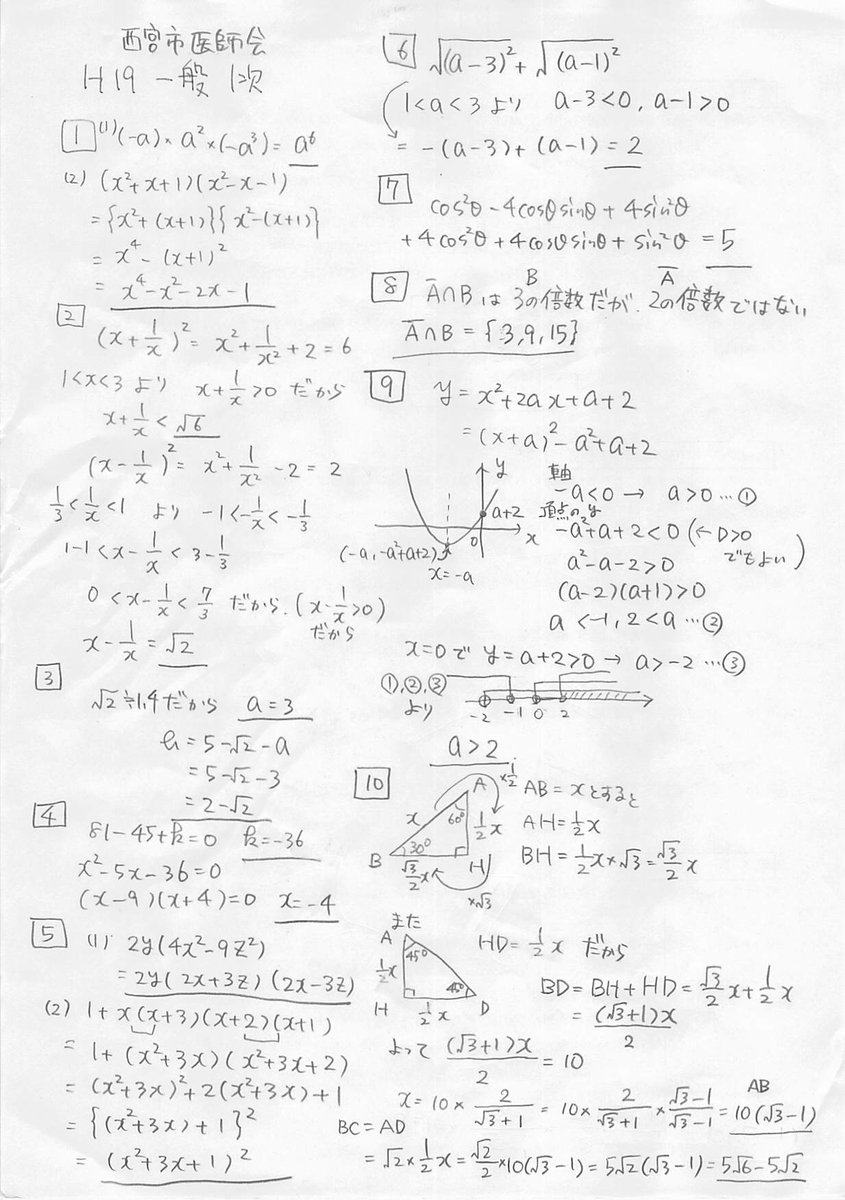 西宮市医師会
H19 一般 1次
1 (1) (-a)×a²×(-a³)=a⁶
(2) (x²+x+1)(x²-x-1)
={x²+(x+1)}{x²-(x+1)}
=x⁴-(x+1)²
=x⁴-x²-2x-1
2
(x+1/x)²=x²+1/x²+2=6
1<x<3より x+1/x>0だから
x+1/x<√6
(x-1/x)²=x²+1/x²-2=2
1/3<1/x<1 より -1<-1/x<-1/3
1-1<x-1/x<3-1/3
0<x-1/x<7/3 だから、(x-1/x>0)
だから
x-1/x=√2
3
√2≒1.4だから a=3
b=5-√2-a
=5-√2-3
=2-√2
4
81-45+k=0 k=-36
x²-5x-36=0
(x-9)(x+4)=0 x=-4
5 (1) 2y(4x²-9z²)
=2y(2x+3z)(2x-3z)
(2) 1+x(x+3)(x+2)(x+1)
=1+(x²+3x)(x²+3x+2)
=(x²+3x)²+2(x²+3x)+1
={(x²+3x)+1}²
=(x²+3x+1)²
6 √(a-3)²+√(a-1)²
1<a<3より a-3<0, a-1>0
=-(a-3)+(a-1)=2
7
cos²θ-4cosθsinθ+4sin²θ
+4cos²θ+4cosθsinθ+sin²θ=5
B A̅
8 A̅∩Bは3の倍数だが、2の倍数ではない
A̅∩B={3,9,15}
9 y=x²+2ax+a+2
=(x+a)²-a²+a+2
y
a+2
0
x
(-a,-a²+a+2)
x=-a
軸
-a<0→ a>0…①
頂点のy
-a²+a+2<0(←D>0
でもよい)
a²-a-2>0
(a-2)(a+1)>0
a<-1, 2<a…②
x=0で y=a+2>0→a>-2…③
①,②,③
より
-2 -1 0 2
a>2
10
A
×1/2
x
60°
1/2x
B
30°
H
√3/2x
×√3
AB=xとすると
AH=1/2x
BH=1/2x×√3=√3/2x
また
A
45°
1/2x
45°
H
1/2x
D
HD=1/2x だから
BD=BH+HD=√3/2x+1/2x
=(√3+1)x/2
よって (√3+1)x/2=10
AB
x=10×2/(√3+1)=10×2/(√3+1)×(√3-1)/(√3-1)=10(√3-1)
BC=AD
=√2×1/2x=√2/2×10(√3-1)=5√2(√3-1)=5√6-5√2